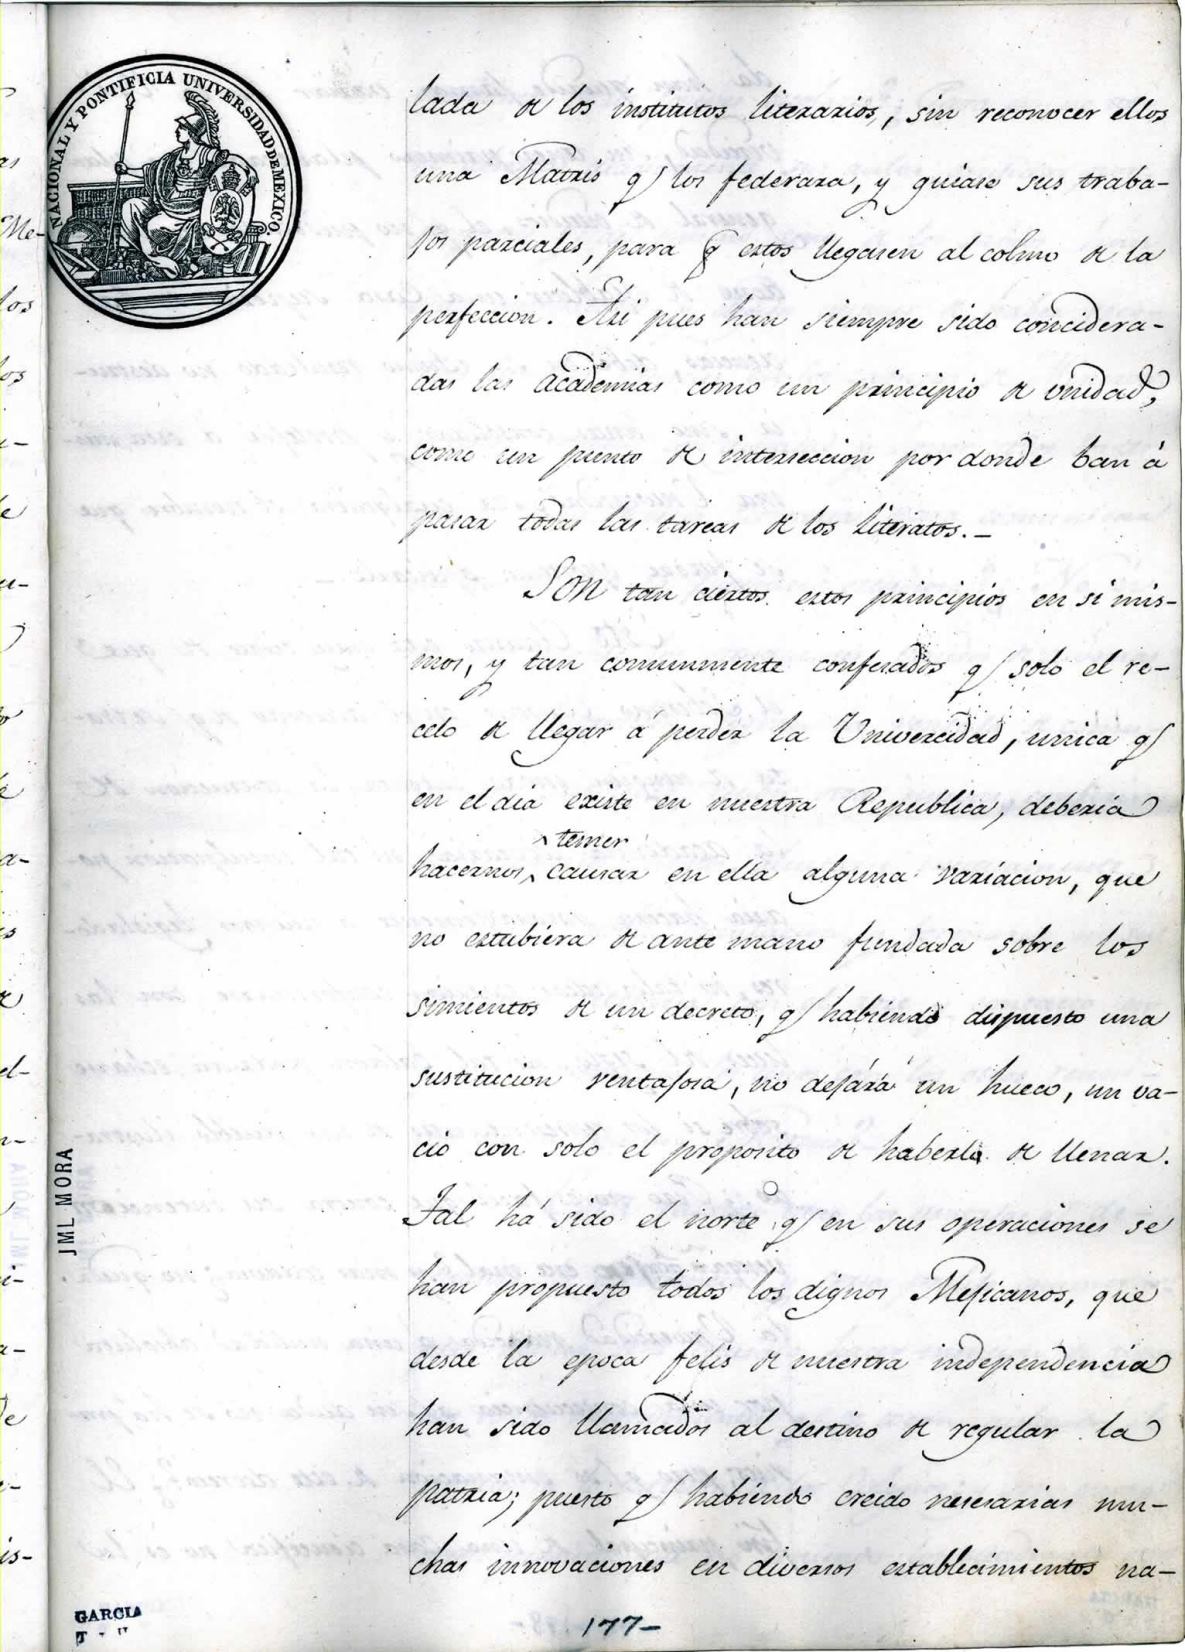 NACIONAL Y PONTIFICIA UNIVERSIDAD DE MEXICO.
lada de los institutos literarios, sin reconocer ellos
una Matris q/ los federara, y guiase sus traba-
jos parciales, para q estos llegasen al colmo de la
perfeccion. Asi pues han siempre sido concidera-
das las academias como un principio de unidad,
como un punto de interseccion por donde ban á
pasar todas las tareas de los literatos.-
Son tan ciertos estos principios en si mis-
mos, y tan comunmente confesados q/ solo el re-
celo de llegar á perder la Univercidad, unica q/
en el dia existe en nuestra Republica, deberia
temer
hacernos causar en ella alguna variacion, que
no estubiera de ante mano fundada sobre los
simientos de un decreto, q/ habiendo dispuesto una
sustitucion ventajosa, no dejára un hueco, un va-
cio con solo el proposito de haberlo de llenar.
Tal há sido el norte q/ en sus operaciones se
han propuesto todos los dignos Mejicanos, que
desde la epoca felis de nuestra independencia
han sido llamados al destino de regular la
patria; puesto q/ habiendo creido nesesarias mu-
chas innovaciones en diversos establecimientos na-
JML MORA
GARCIA
177-